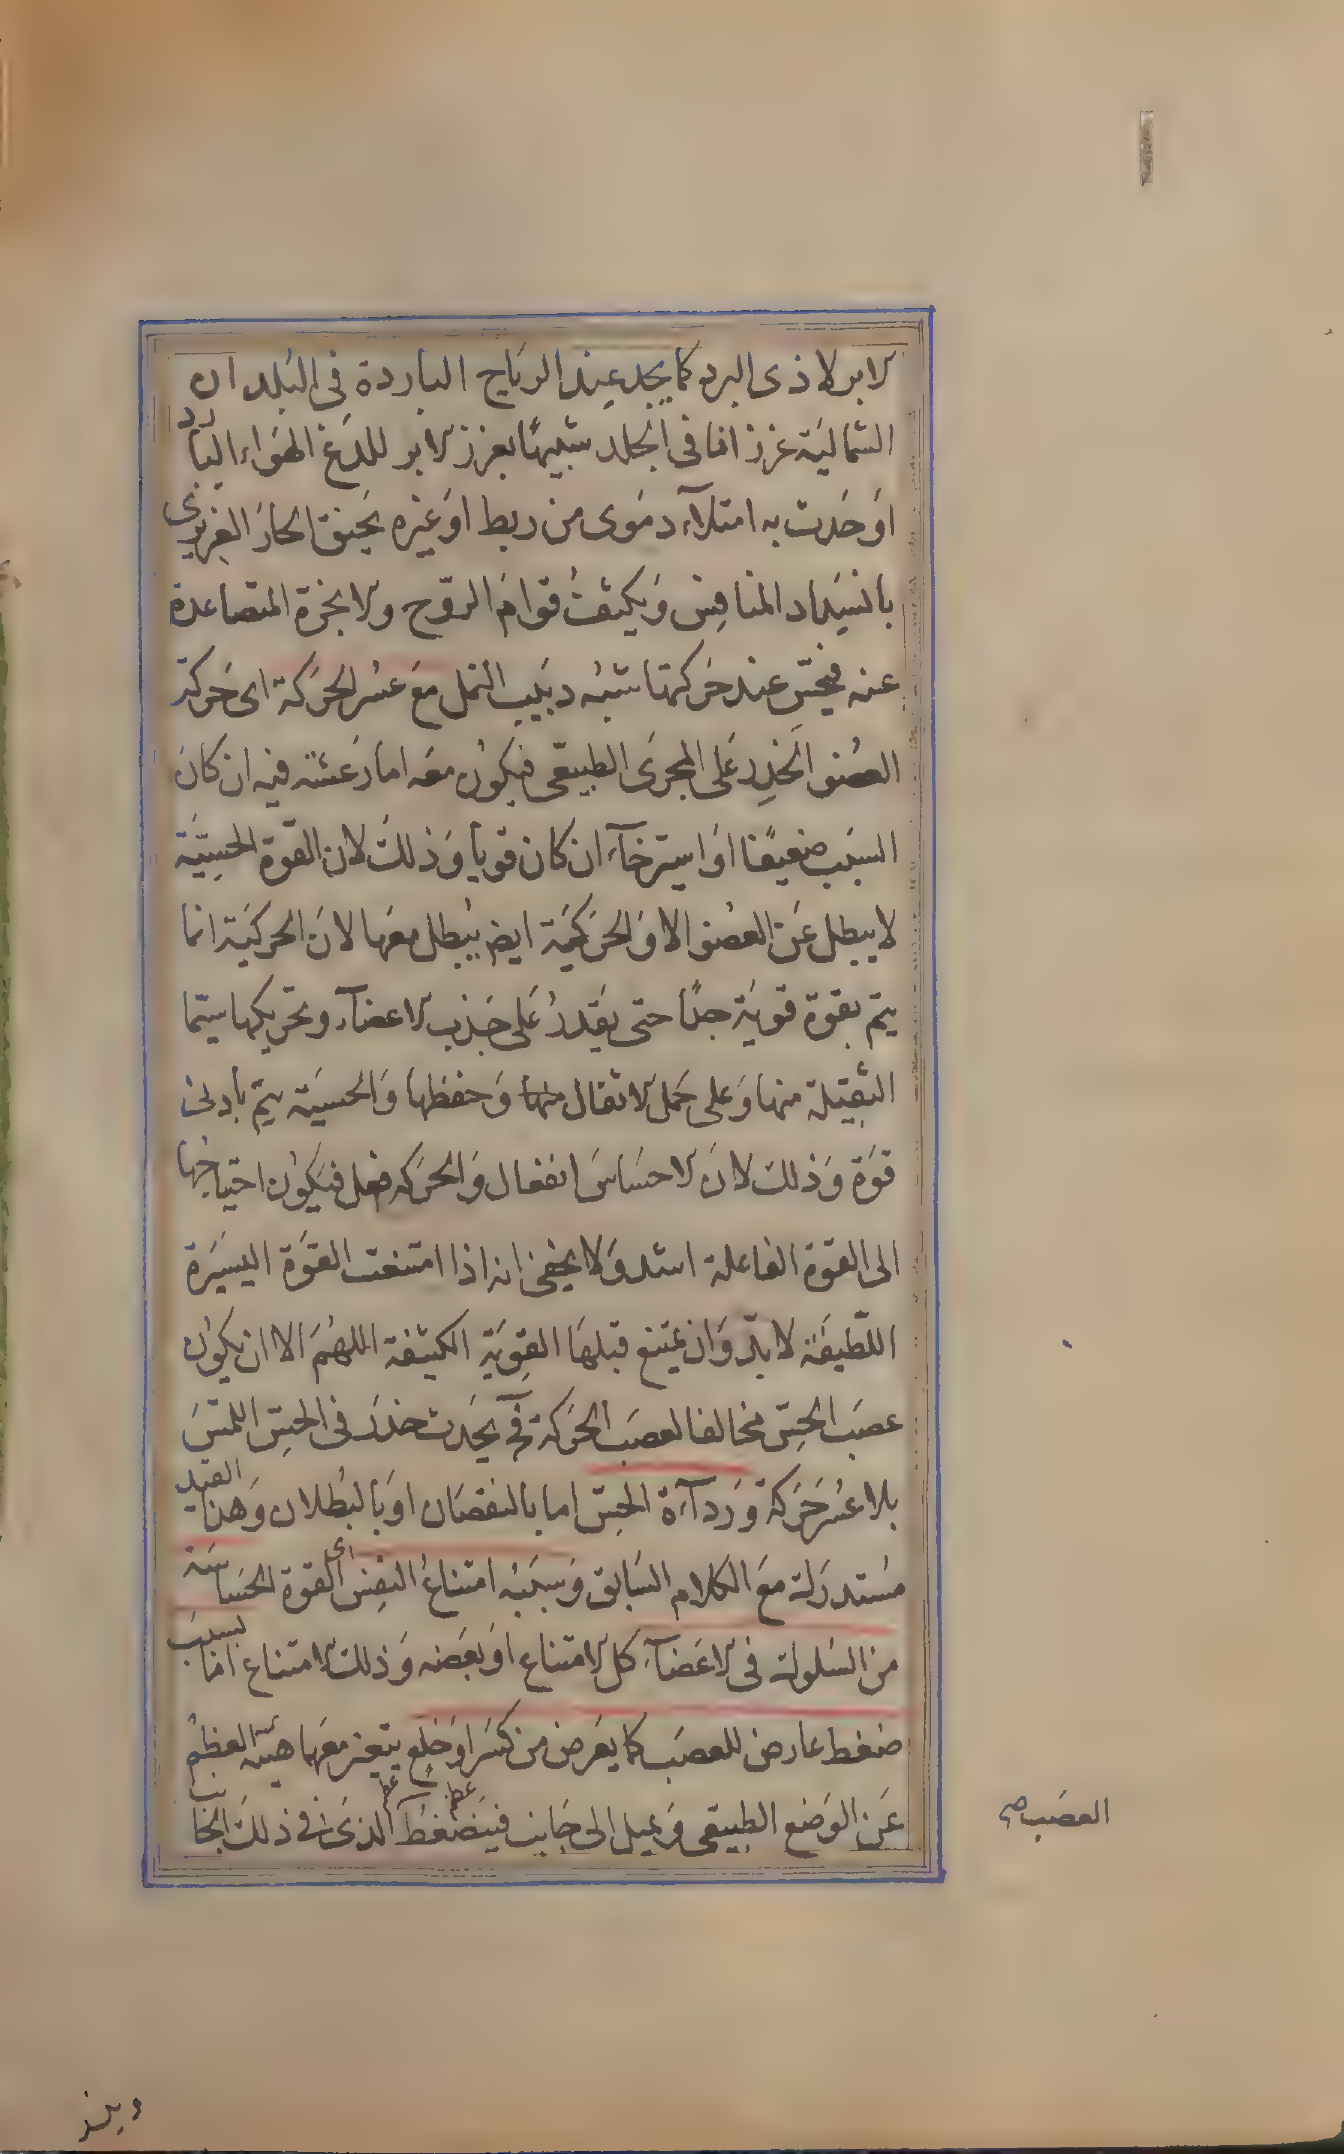 الابر لاذى البرد كما يجد عند الرياح الباردة في البلدان
الشمالية غرز اما في الجلد شبيهًا بغرز الابر للدغ الهواء البارد
او حدث به امتلآء دموى من ربط او غيره يختنق الحار الغريزى
بانسداد المنافس ويكثف قوام الروح والابخرة المتصاعدة
عنه فيحس عند حركتها شبه دبيب النمل مع عسر الحركة اى حركة
العضو الخدر على المجرى الطبيعى فيكون معه اما رعشة فيه ان كان
السبب ضعيفًا او استرخآء ان كان قويا وذلك لان القوة الحسية
لا يبطل عن العضو الا والحركية ايضا يبطل معها لان الحركية انما
يتم بقوة قوية جدًا حتى يقدر على جذب الاعضآء وتحريكها سيما
الثقيلة منها وعلى حمل الاثقال منها وحفظها والحسية يتم بادنى
قوة وذلك لان الاحساس انفعال والحركة فعل فيكون احتياجها
الى القوة الفاعلة اشد ولا يخفى انه اذا امتنعت القوة اليسيرة
اللطيفة لا بد وان يمتنع قبلها القوية الكثيفة اللهم الا ان يكون
عصب الحس مخالفا لعصب الحركة فح يحدث خدر في الحس اللمس
بلا عسر حركة وردآءة الحس اما بالنقصان او بالبطلان وهذا القيد
مستدرك مع الكلام السابق وسببه امتناع النفس اى القوة الحساسة
من السلوك في الاعضآء كل الامتناع او بعضه وذلك الامتناع اما بسبب
ضغط عارض للعصب كما يعرض من كسر او خلع يتغير معهما هيئة العظم
عن الوضع الطبيعى ويميل الى جانب فينضغط الذى في ذلك الجانب
العصب صح